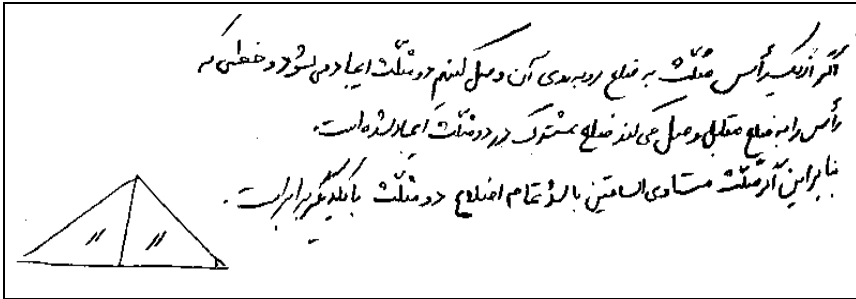 اگر از یک رأس مثلث به ضلع روبه‌روی آن وصل کنیم دو مثلث ایجاد می‌شود و خطی که
رأس را به ضلع مقابل وصل می‌کند ضلع مشترک در دو مثلث ایجاد شده است.
بنابراین اگر مثلث متساوی الساقین باشد تمام اضلاع دو مثلث با یکدیگر برابر است.